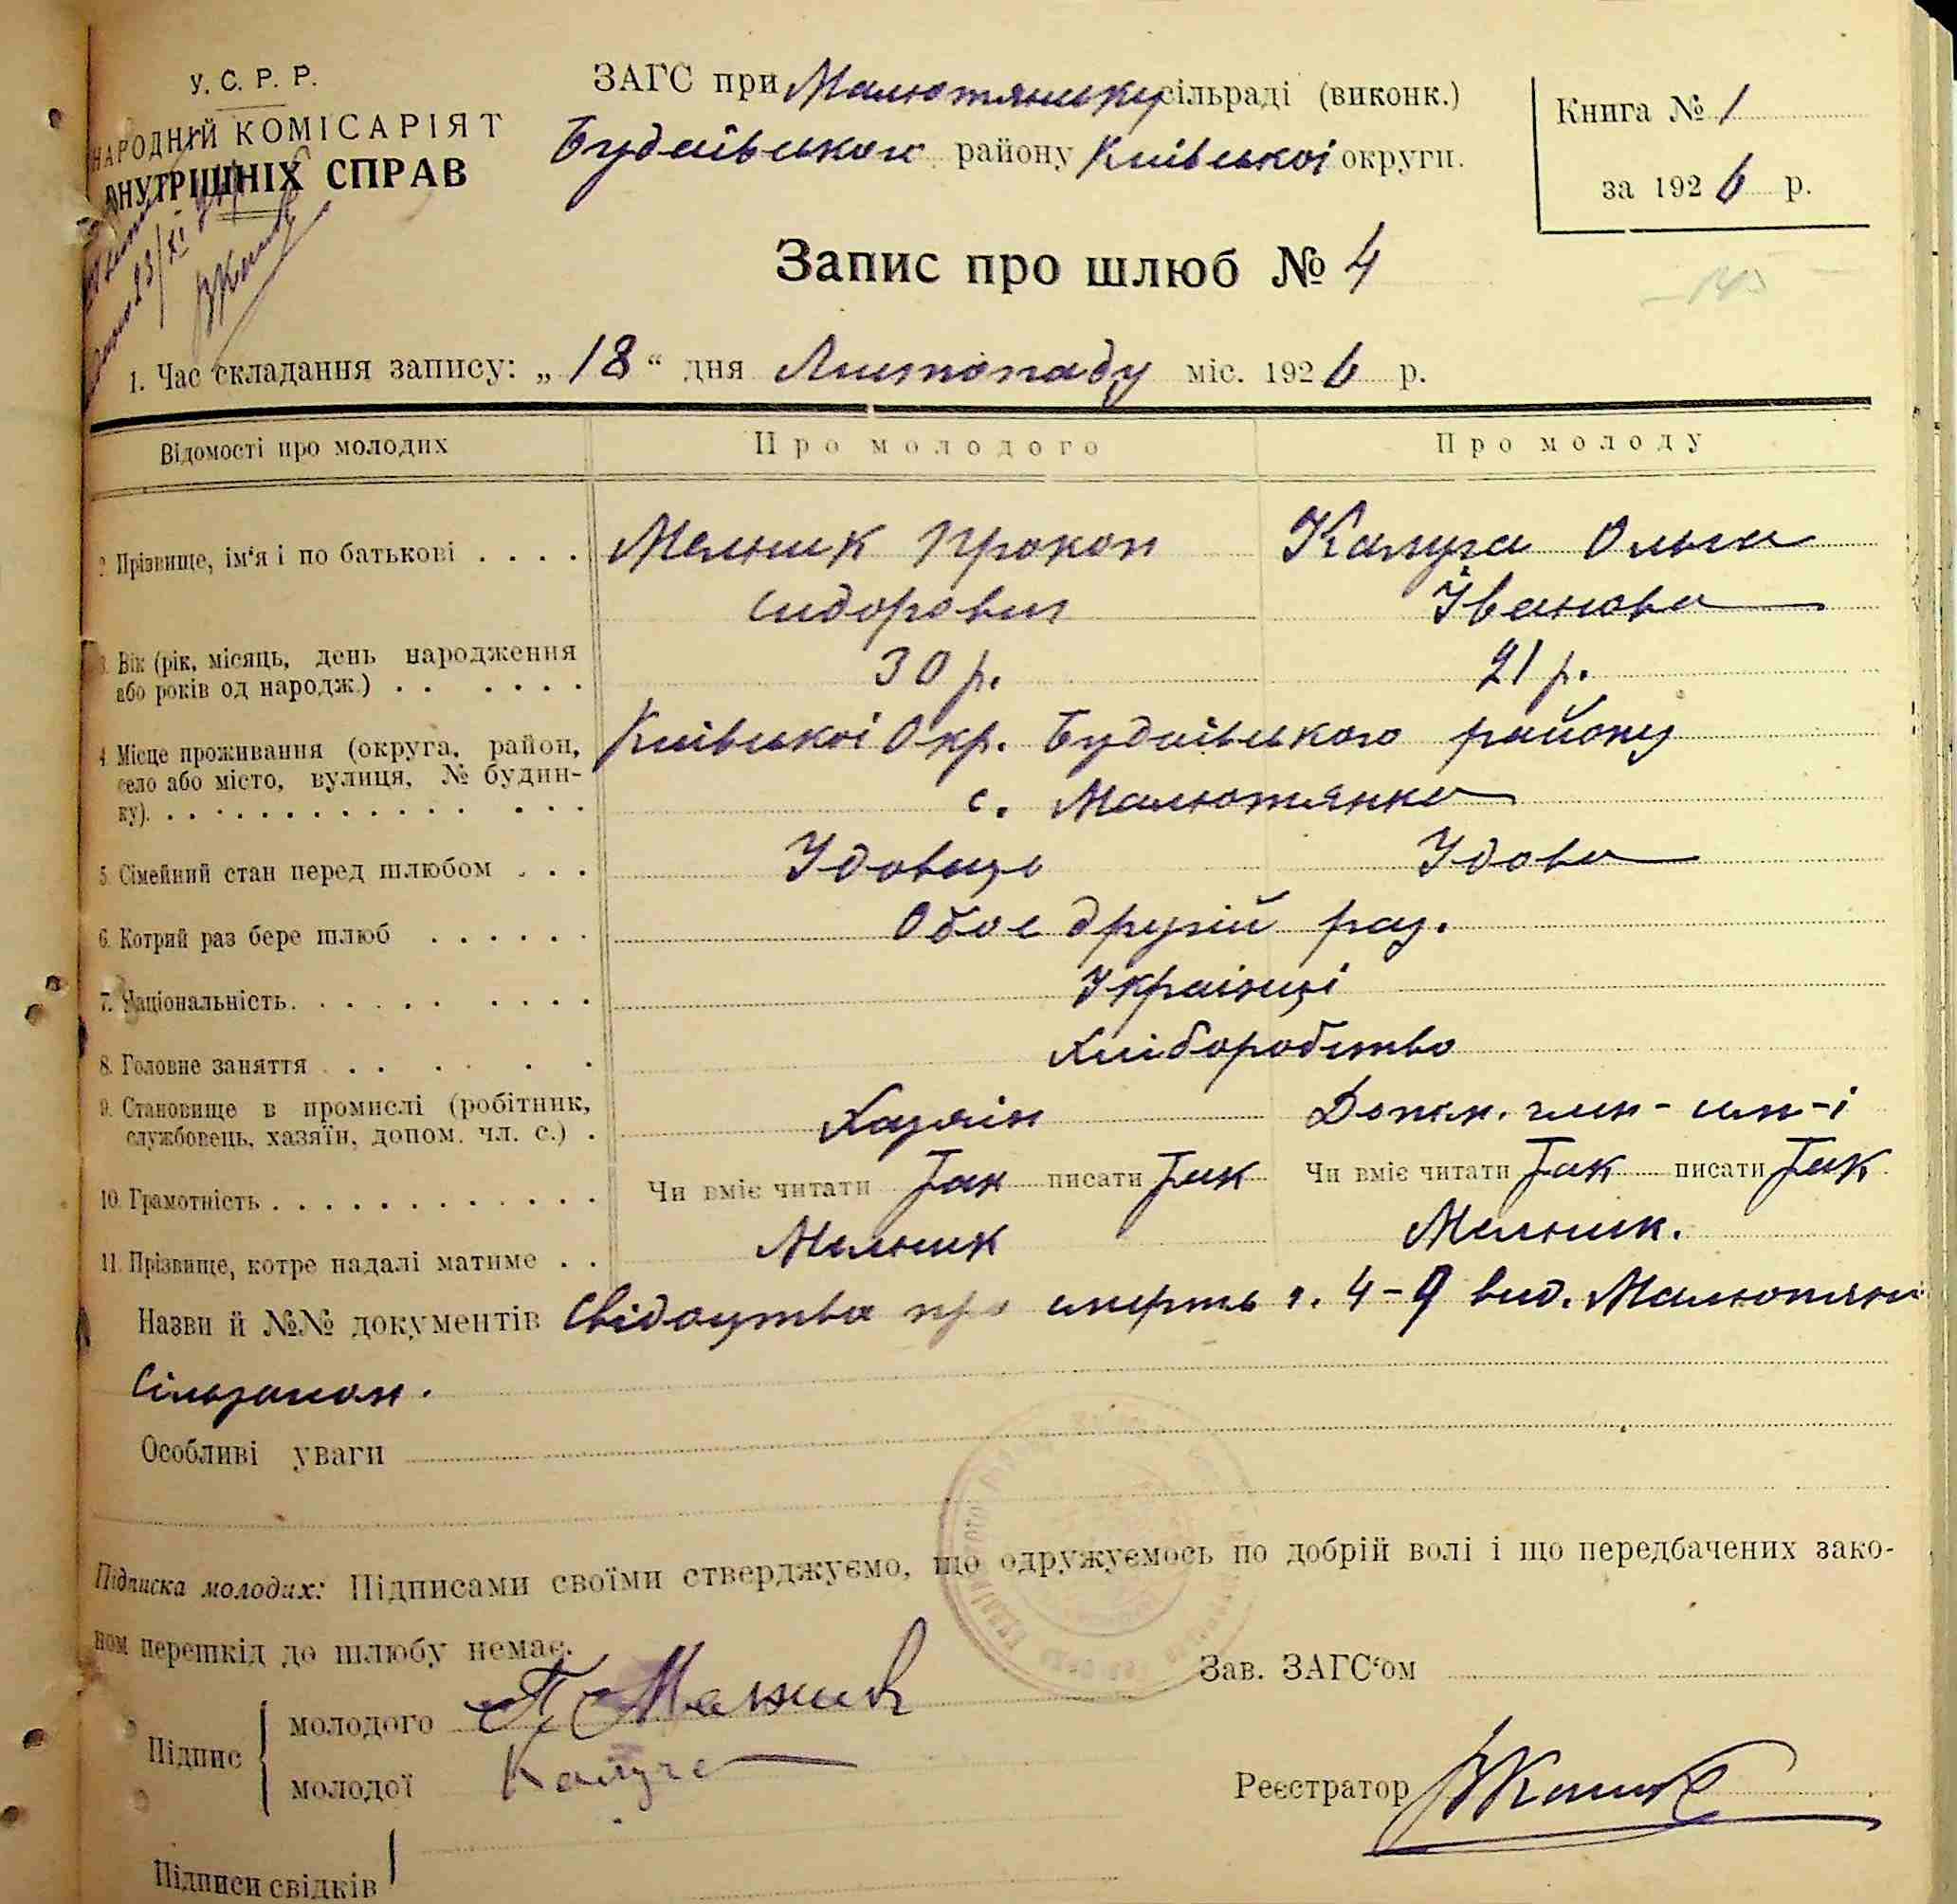 У. С. Р. Р.
НАРОДНІЙ КОМІСАРІЯТ
ВНУТРІШНІХ СПРАВ
23/XI
ЗАГС при Малютянську сільраді (виконк.)
Будаївського району Київської округи.
Книга № 1
за 1926 р.
Запис про шлюб № 4
1. Час складання запису: „18“ дня Листопаду міс. 1926 р.
Відомості про молодих Про молодого Про молоду
2. Прізвище, ім'я і по батькові . . . . Мельник Прокоп Калуга Ольга
Сидорович Іванова
3. Вік (рік, місяць, день народження
або років од народж.) . . . . . . 30 р. 21 р.
4. Місце проживання (округа, район, Київської Окр. Будаївського району
село або місто, вулиця, № будин-
ку). . . . . . . . . . . . . . . с. Малютянка
5. Сімейний стан перед шлюбом . . . Удовець Удова
6. Котрий раз бере шлюб . . . . . . Обоє другий раз.
7. Національність. . . . . . . . . . Українці
8. Головне заняття . . . . . . Хліборобство
9. Становище в промислі (робітник,
службовець, хазяїн, допом. чл. с.) . Хазяїн Допом. член-
10. Грамотність . . . . . . . . . . . . Чи вміє читати Так писати Так Чи вміє читати Так писати Так
11. Прізвище, котре надалі матиме . . Мельник Мельник.
Назви й №№ документів Свідоцтва про смерть ч. 4-9 вид. Малютян
Сільзагсом.
Особливі уваги
Підписка молодих: Підписами своїми стверджуємо, що одружуємось по добрій волі і що передбачених зако-
ном перешкід до шлюбу немає.
Зав. ЗАГС'ом
Підпис { молодого П. Мельник
молодої Калуга
Реєстратор
Підписи свідків